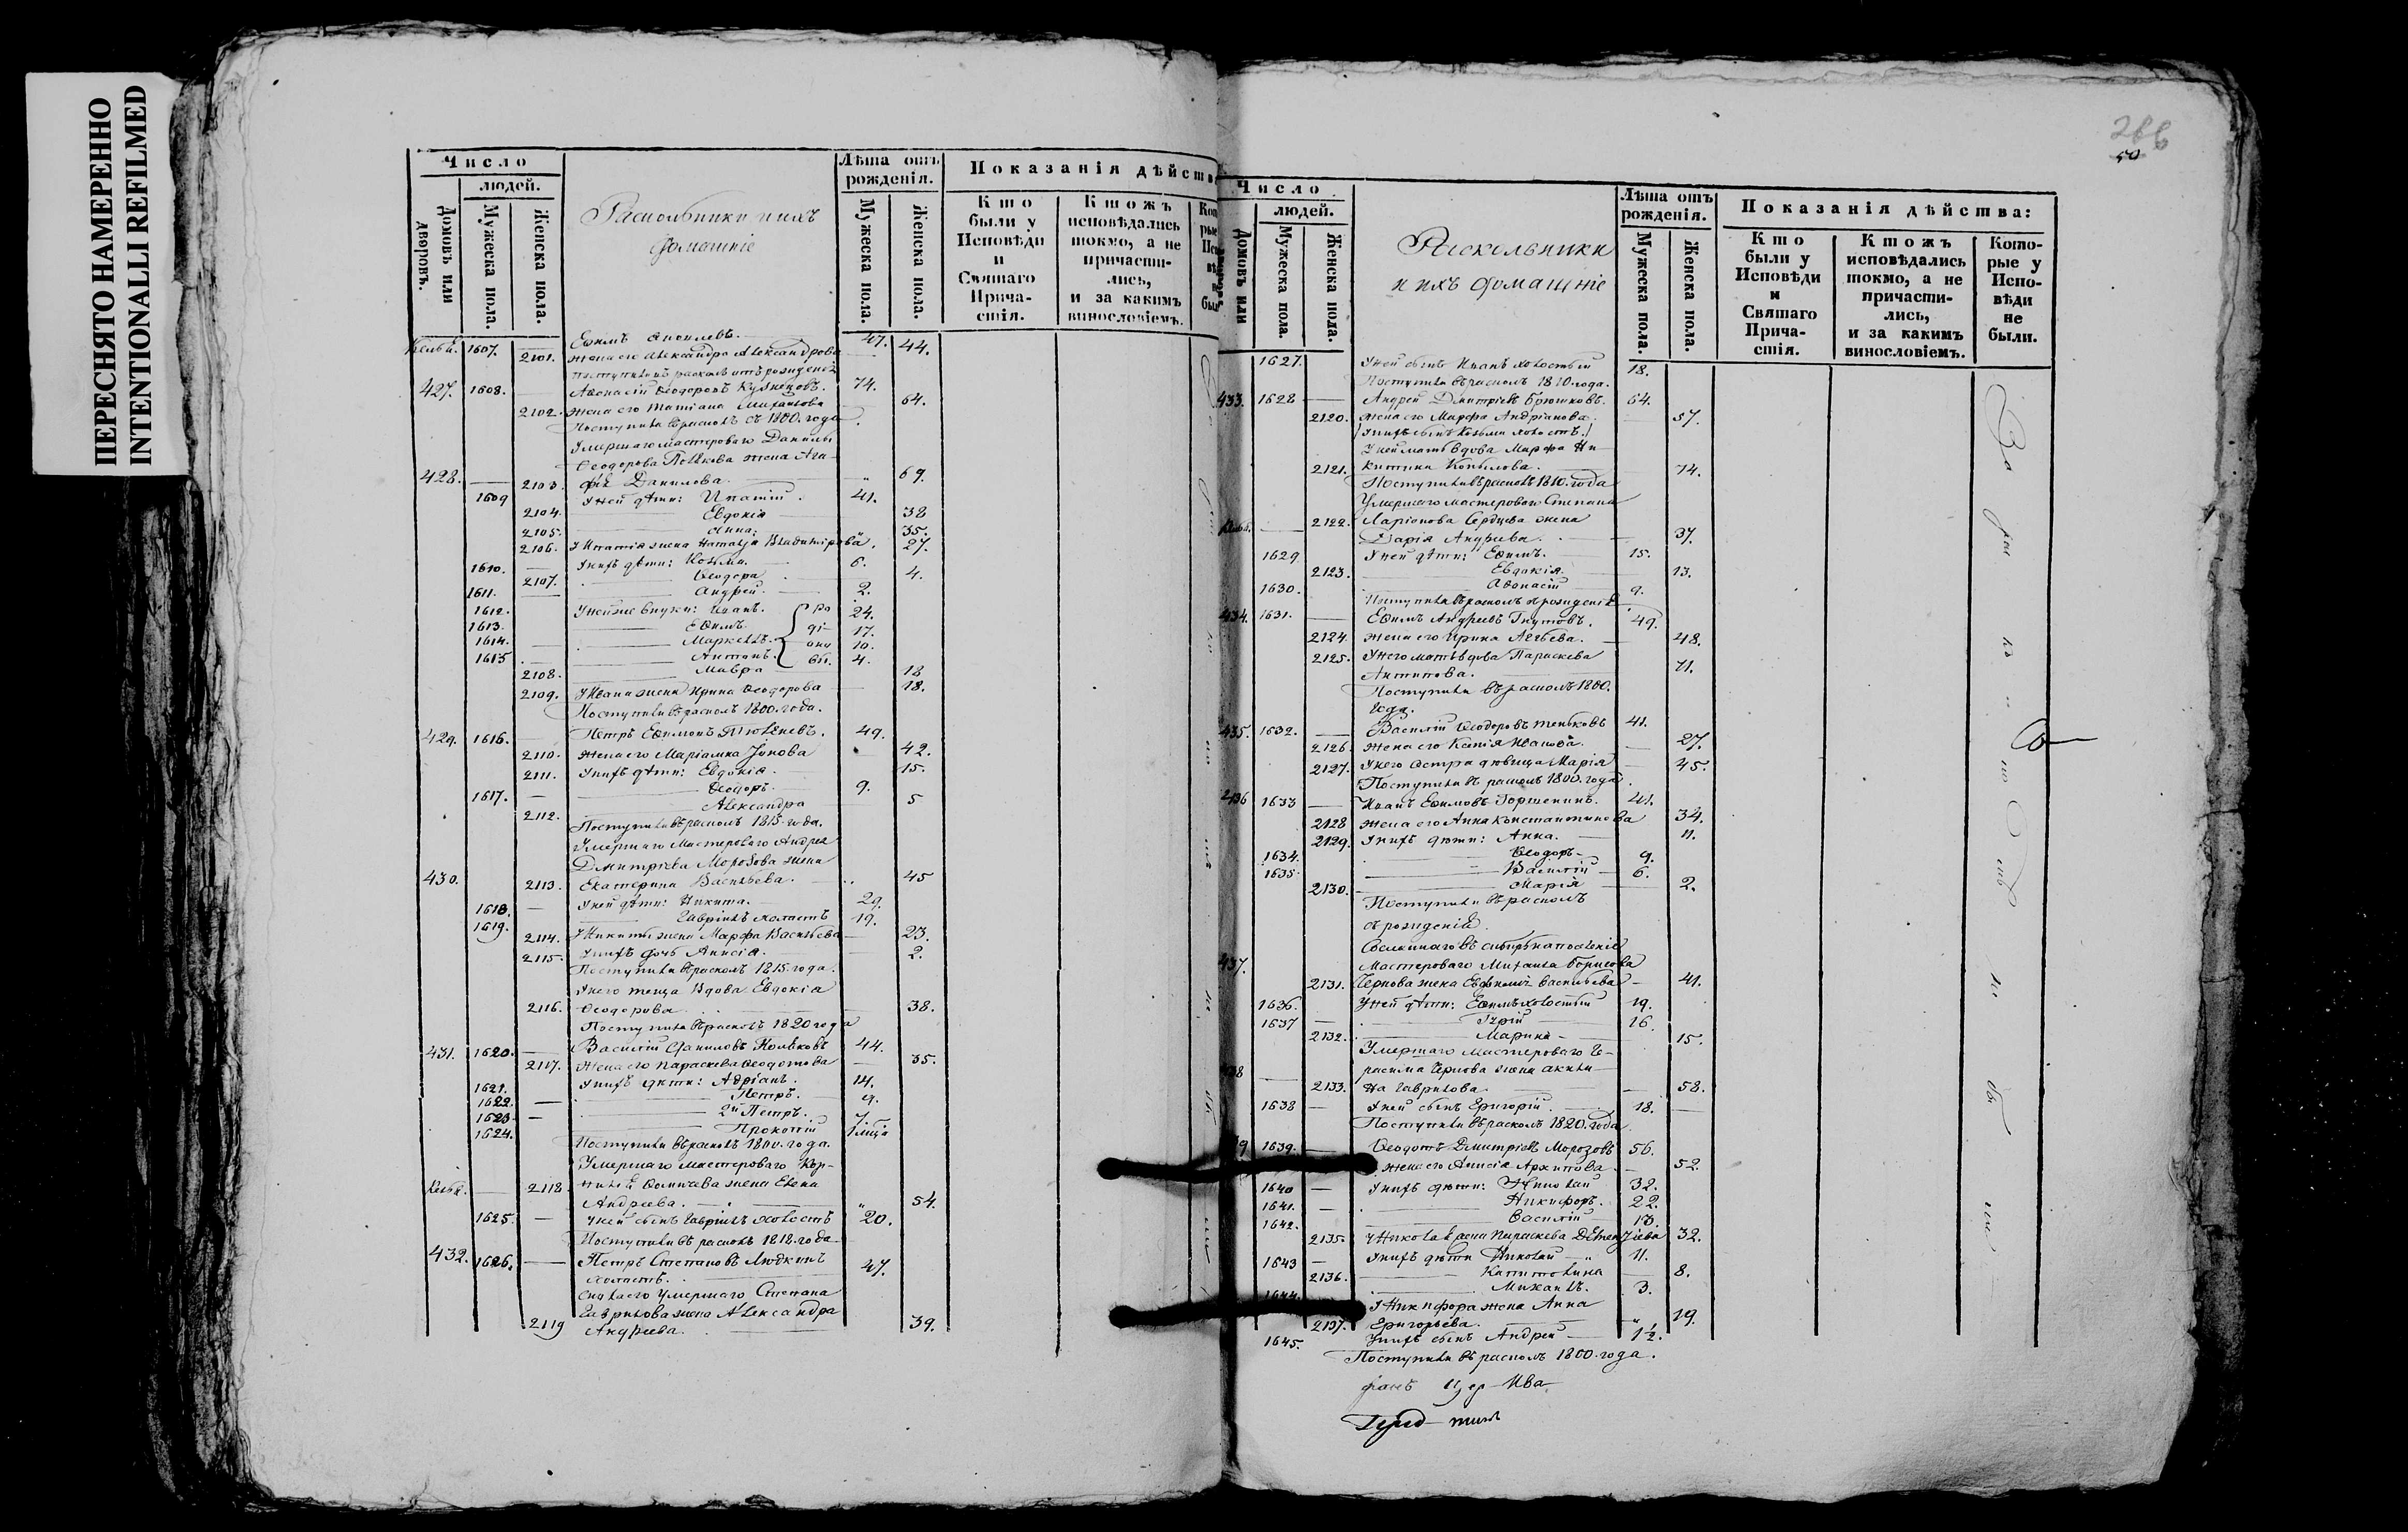 ПЕРЕСНЯТО НАМЕРЕННО
INTENTIONALLI REFILMED
Число
людей.
Домовъ или дворовъ.
Мужеска пола.
Женска пола.
Раскольники и ихъ
домашніе
Лѣта отъ
рожденія.
Мужеска пола.
Женска пола.
Показанія дѣйств
Кто
были у
Исповѣди
и
Святаго
Прича-
стія.
Ктожъ
исповѣдались
токмо, а не
причасти-
лись,
и за какимъ
винословіемъ.
1607. Ефимъ 47.
2101. жена его Александра Александрова 44.
поступили въ расколъ отъ рожденія
427. 1608. Афанасій Ѳеодоровъ Кузнецовъ. 74.
2102. жена его Татіана Михайлова 64.
Поступили въ расколъ съ 1800. года
Умершаго мастероваго Данилы
Ѳеодорова жена Ага-
428. 2103. фія Данилова. 69.
1609 У ней дѣти: Ипатій. 41.
2104. Евдокія 38
2105. Анна. 35.
2106. У Ипатія жена Наталья Владимірова. 27.
1610. У нихъ дѣти: Козьма. 6.
2107. Ѳеодора 4.
1611. Андрей. 2.
1612. У ней же внуки: Иванъ. 24.
1613. Ефимъ. 17.
1614. Маркеллъ. 10.
1615. Антонъ. 4.
2108. Мавра 18
2109. У Ивана жена Ирина Ѳеодорова 18.
Поступили въ расколъ 1800. года.
429. 1616. Петръ Ефимовъ 49.
2110. жена его Маріамна 42.
2111. У нихъ дѣти: Евдокія. 15.
1617. Ѳеодоръ. 9.
2112. Александра 5
Поступили въ расколъ 1815. года.
Умершаго Мастероваго Андрея
Дмитріева Морозова жена
430. 2113. Екатерина Васильева. 45
1618. У ней дѣти: Никита. 29.
1619. Гавріилъ холостъ 19.
2114. У Никиты жена Марфа Васильева 23.
2115. У нихъ дочь Анисія. 2.
Поступили въ расколъ 1815. года.
У него теща Вдова Евдокія
2116. Ѳеодорова 38.
Поступила въ расколъ 1820 года
431. 1620. Василій Даниловъ 44.
2117. Жена его Параскева Ѳеодотова 35.
1621. У нихъ дѣти: Адріанъ. 14.
1622. Петръ. 9.
1623. 2й Петръ. 7.
1624. Прокопій
Поступили въ расколъ 1800. года.
Умершаго мастероваго Кор-
2118. нилія жена Елена
Андреева. 54.
1625. У ней сынъ Гавріилъ холостъ 20.
Поступили въ расколъ 1818. года
432. 1626. Петръ Степановъ Людкинъ 47.
холостъ.
Умершаго Степана
Гаврилова жена Александра
2119 Андреева. 39.
266
50
Число
людей.
Домовъ или
Мужеска пола.
Женска пола.
Раскольники
и ихъ домашніе
Лѣта отъ
рожденія.
Мужеска пола.
Женска пола.
Показанія дѣйства:
Кто
были у
Исповѣди
и
Святаго
Прича-
стія.
Ктожъ
исповѣдались
токмо, а не
причасти-
лись,
и за какимъ
винословіемъ.
Кото-
рые у
Испо-
вѣди
не
были.
1627. У ней сынъ Иванъ холостый 18.
Поступили въ расколъ 1810. года.
433. 1628 Андрей Дмитріевъ Брюшковъ. 64.
2120. жена его Марфа Андріанова. 57.
У нихъ сынъ Козьма холостъ.
У ней мать вдова Марфа Ни-
2121. китина Копылова. 74.
Поступили въ расколъ 1810. года
Умершаго мастероваго Степана
2122. Ларіонова Сердцева жена
Дарія Андреева. 37.
1629. У ней дѣти: Ефимъ. 15.
2123. Евдокія. 13.
1630. Афанасій 9.
Поступили въ расколъ съ рожденія
434. 1631. Ефимъ Андреевъ 49.
2124. жена его Ирина 48.
2125. У него мать вдова Параскева
Антипова. 71.
Поступили въ расколъ 1800.
года.
435. 1632. Василій Ѳеодоровъ Теньковъ 41.
2126. жена его Ксенія Иванова. 27.
2127. У него сестра дѣвица Марія 45.
Поступили въ расколъ 1800. года.
436 1633 Иванъ Ефимовъ Горшенинъ. 41.
2128 жена его Анна Константинова 34.
2129. У нихъ дѣти: Анна. 11.
1634. Ѳеодоръ 9.
1635. Василій 6.
2130. Марія 2.
Поступили въ расколъ
съ рожденія.
Сосланнаго въ сибирь на поселеніе
437. Мастероваго Михаила Борисова
2131. Чернова жена Евфимія Васильева 41.
1636. У ней дѣти: Ефимъ холостый 19.
1637 Гурій 16.
2132. Марина 15.
Умершаго мастероваго Ге-
расима Чернова жена Акили-
2133. на Гаврилова. 58.
1638 У ней сынъ Григорій. 18.
Поступили въ расколъ 1820. года.
1639. Ѳеодотъ Дмитріевъ Морозовъ 56.
жена его Анисія Архипова. 52.
1640 У нихъ дѣти: Николай 32.
1641. Никифоръ. 22.
1642. Василій 13.
2135. У Николая жена Параскева 32.
1643 У нихъ дѣти Николай 11.
2136. Капитолина 8.
1644. Михаилъ. 3.
У Никифора жена Анна
2137. Григорьева. 19.
1645. У нихъ сынъ Андрей 1½.
Поступили въ расколъ 1800. года.